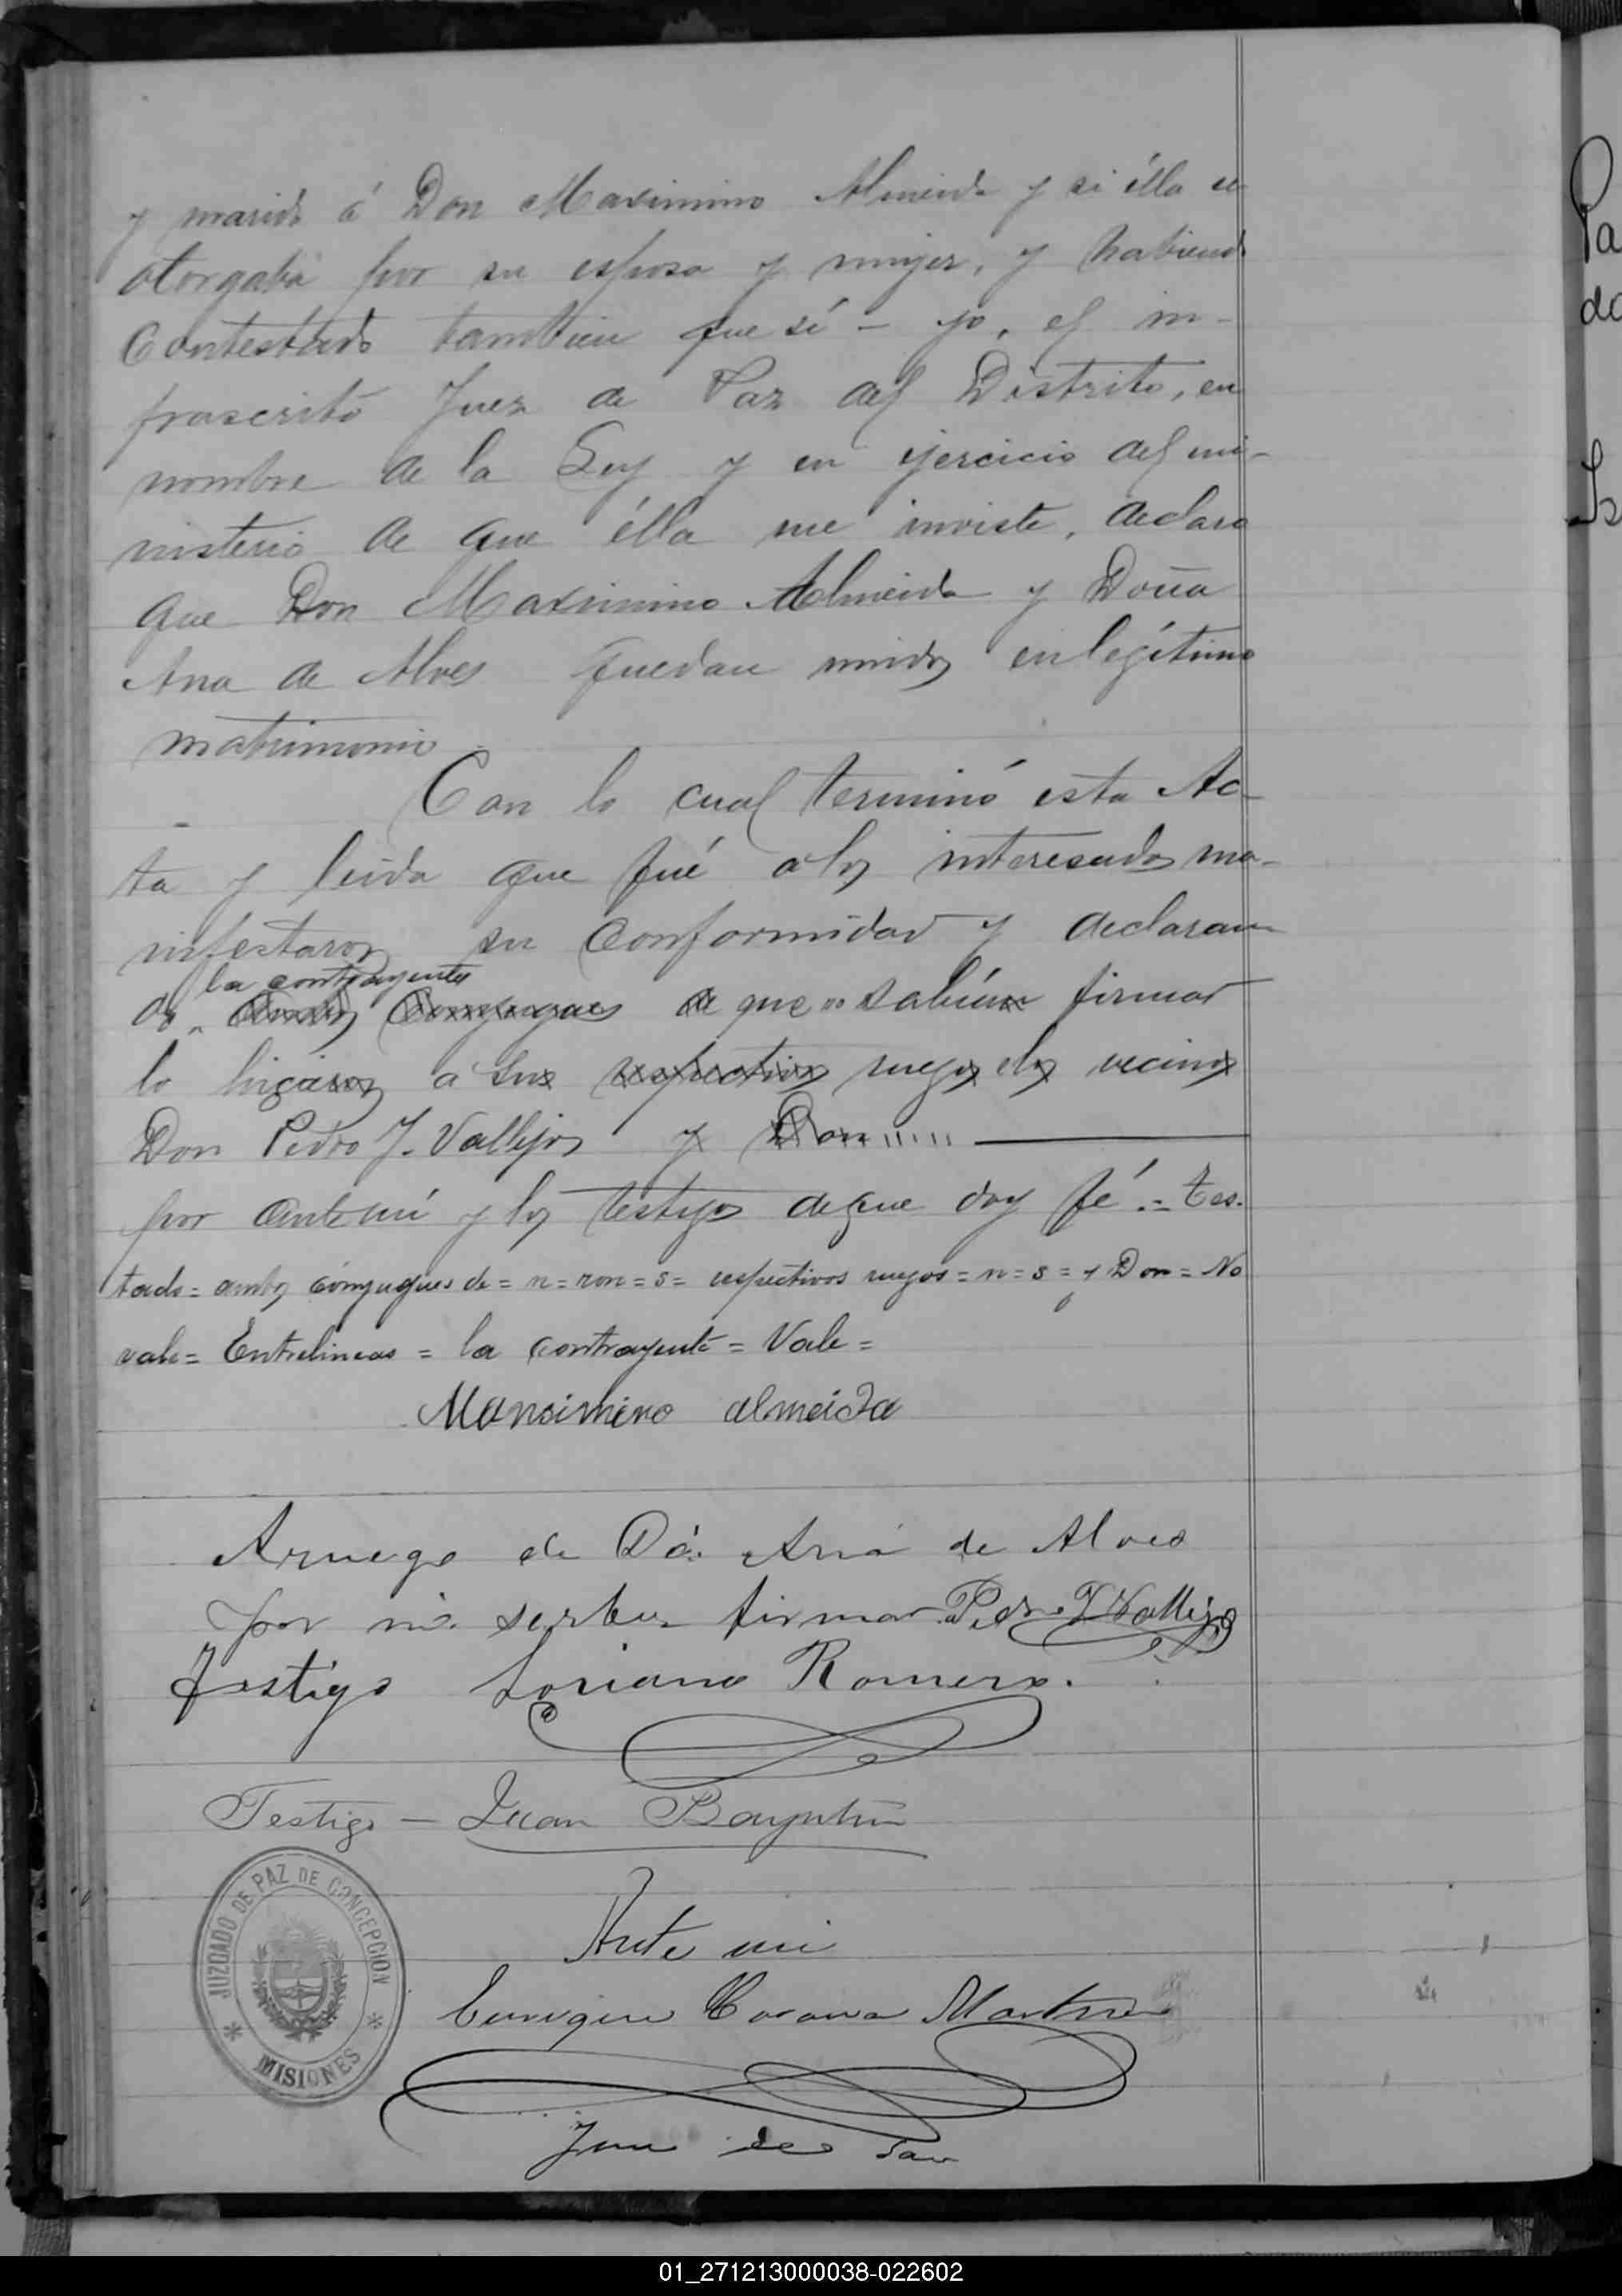 y marido á Don Maximino Almeida y si élla se
otorgaba por su esposa y mujer, y habiendo
Contestado tambien que sí - yo, el in-
frascrito Juez de Paz del Distrito, en
nombre de la Ley y en ejercicio del mi-
nisterio de que élla me inviste, declaro
que Don Maximino Almeida y Doña
Ana de Alves quedan unidos en legítimo
matrimonio
Con lo cual terminó esta Ac-
ta y leida que fué a los interesados ma-
nifestaron su Conformidad y declaran-
la contrayente
do ambos Conyugues de que no sabían firmar
lo hicieron a sus respectivos ruegos los vecinos
Don Pedro J. Vallejos y Don
por ante mí y los testigos de que doy fé .= Tes-
tado = ambos cónyugues de = n = ron = s = respectivos ruegos = n = s = y Don = No
vale = Entrelineas = la contrayente = Vale =
Mansimino almeida
Aruego de Da. Ana de Alves
por no saber firmar Pedro J Vallejos
Testigo Loriano Romero.
Testigo - Juan
Ante mi
Martinez
Juez de Paz
JUZGADO DE PAZ DE CONCEPCION
* MISIONES *
Pa
do
01_271213000038-022602